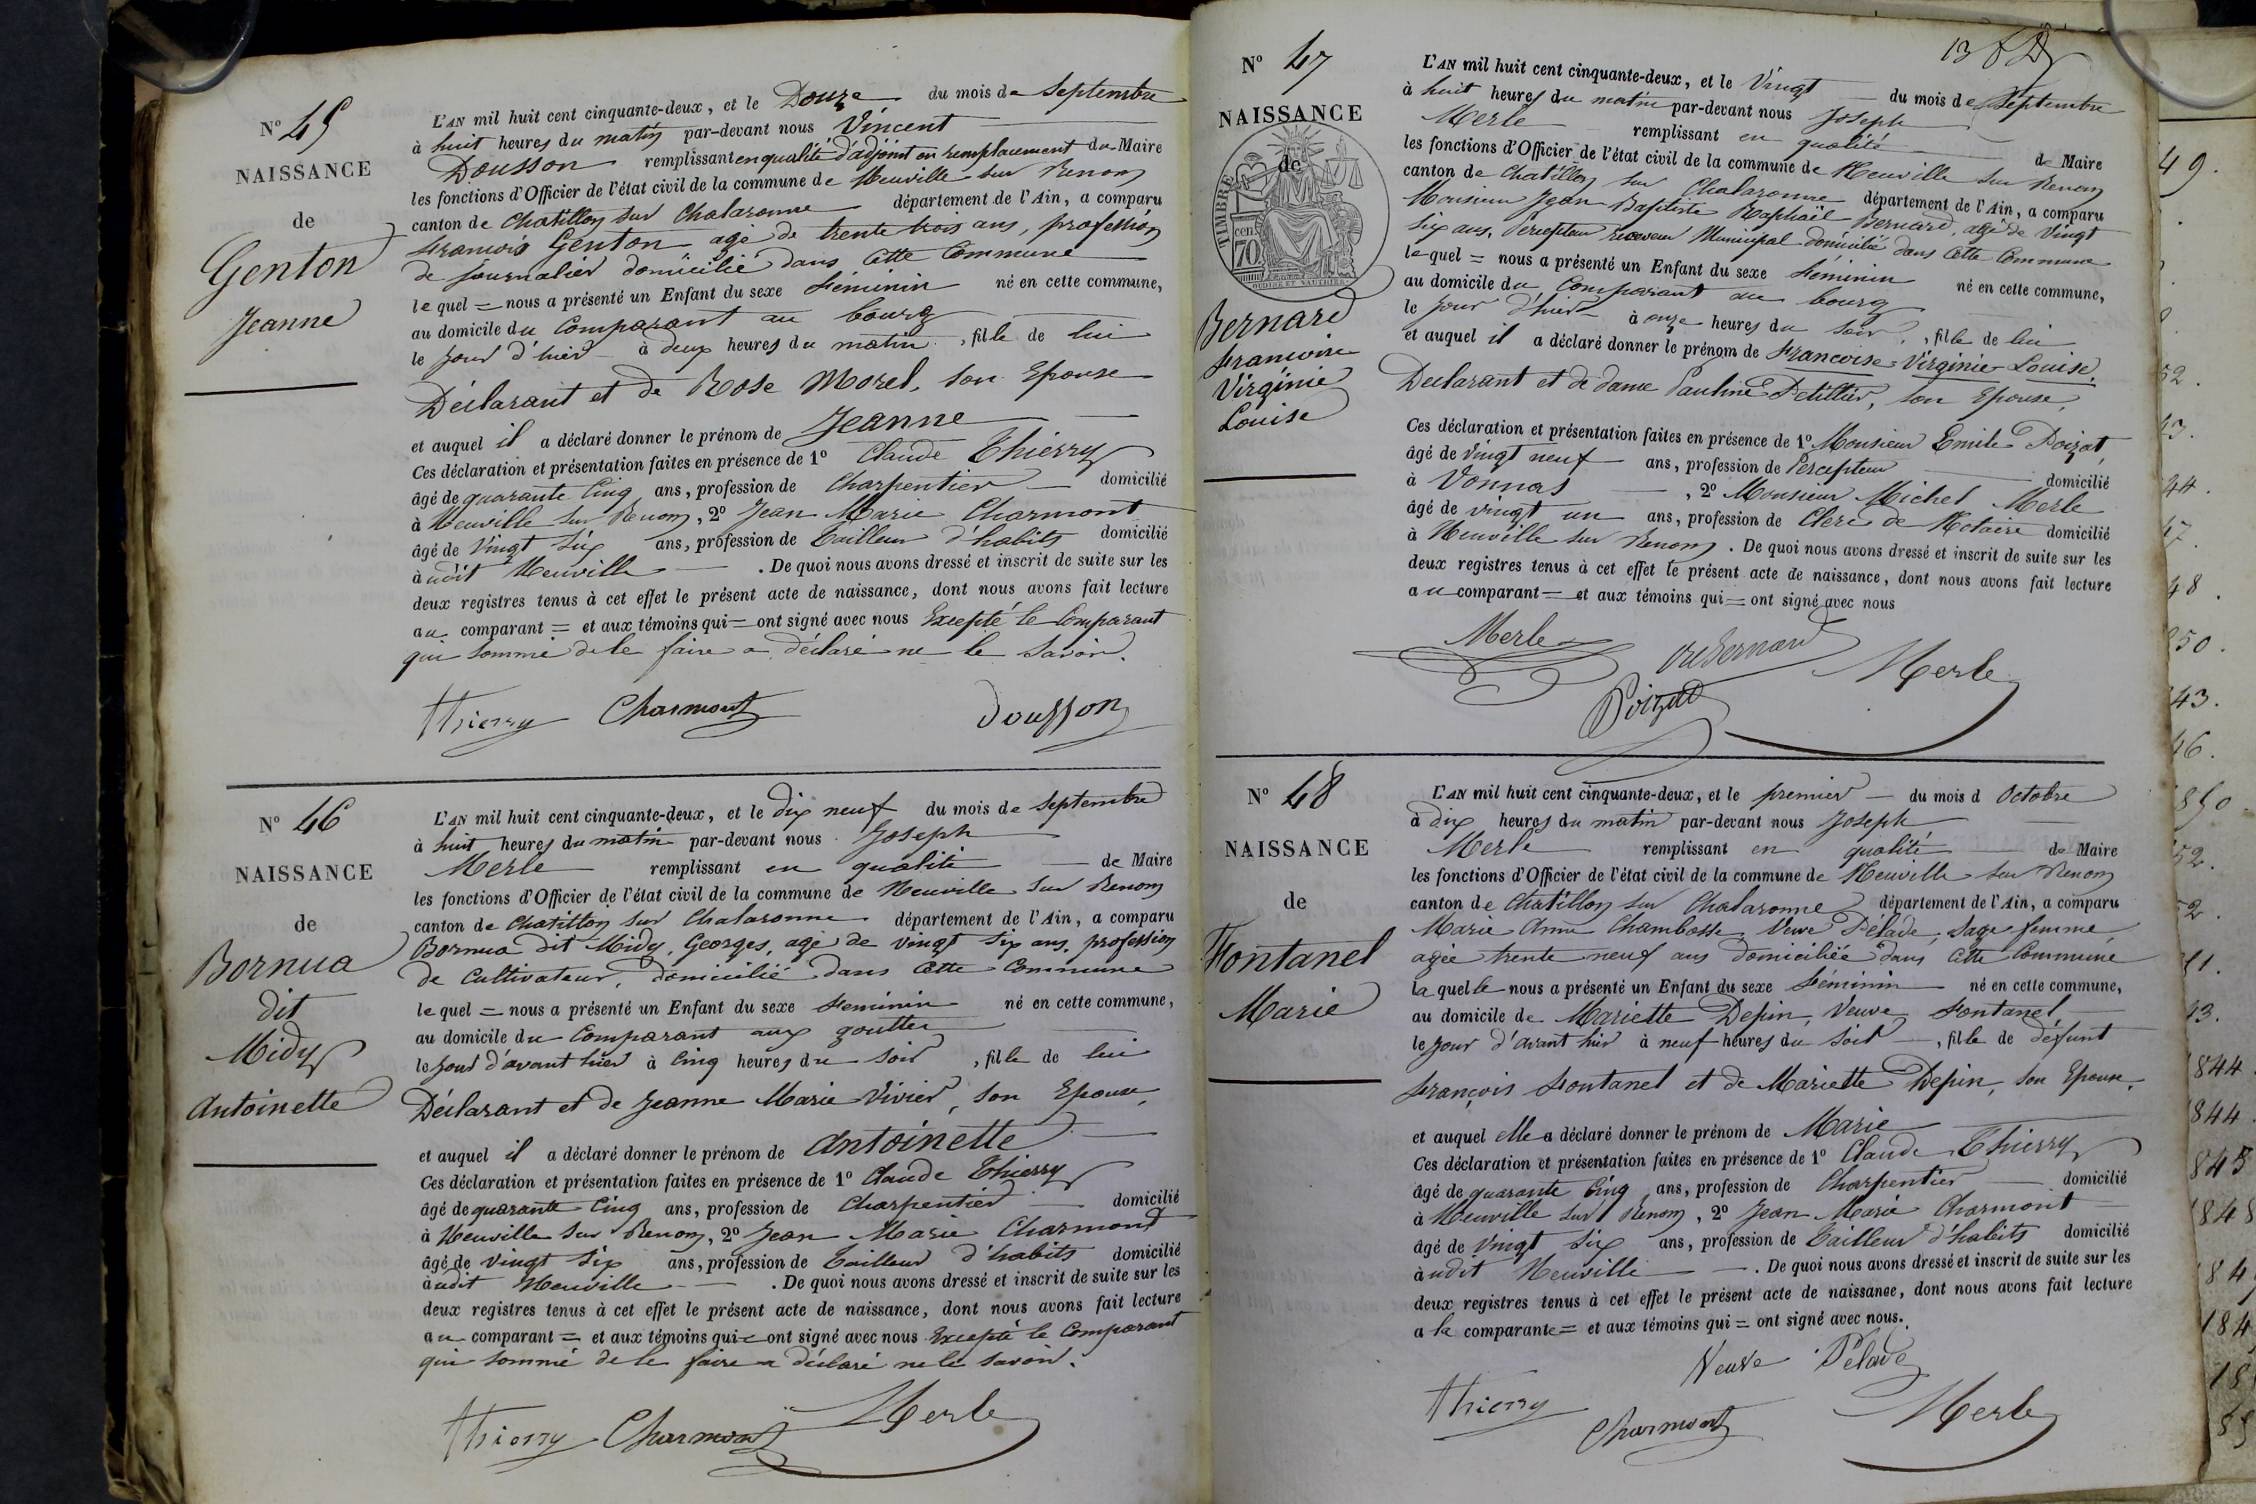 N° 45
NAISSANCE
de
Genton
Jeanne
L'AN mil huit cent cinquante-deux, et le Douze du mois de Septembre
à huit heures du matin par-devant nous Vincent
Dousson remplissant en qualité d'adjoint en remplacement du Maire
les fonctions d'Officier de l'état civil de la commune de Neuville sur Renom
canton de Chatillon sur Chalaronne département de l'Ain, a comparu
francois Genton agé de trente trois ans, profession
de journalier domicilié dans cette Commune
lequel = nous a présenté un Enfant du sexe féminin né en cette commune,
au domicile du Comparant au bourg
le jour d'hier à deux heures du matin, fille de lui
Déclarant et de Rose Morel, son Epouse
et auquel il a déclaré donner le prénom de Jeanne
Ces déclaration et présentation faites en présence de 1° Claude Thierry
âgé de quarante Cinq ans, profession de Charpentier domicilié
à Neuville sur Renom, 2° Jean Marie Charmont
âgé de Vingt Six ans, profession de Tailleur d'habits domicilié
àudit Neuville. De quoi nous avons dressé et inscrit de suite sur les
deux registres tenus à cet effet le présent acte de naissance, dont nous avons fait lecture
au comparant = et aux témoins qui = ont signé avec nous Excepté le Comparant
qui sommé de le faire a déclaré ne le Savoir.
Thierry Charmont Dousson
N° 46
NAISSANCE
de
Bornua
dit
Midy
Antoinette
L'AN mil huit cent cinquante-deux, et le dix neuf du mois de Septembre
à huit heures du matin par-devant nous Joseph
Merle remplissant en qualité de Maire
les fonctions d'Officier de l'état civil de la commune de Neuville sur Renom
canton de Chatillon sur Chalaronne département de l'Ain, a comparu
Bornua dit Midy, Georges, agé de vingt six ans, profession
de Cultivateur, domicilié dans Cette Commune
lequel = nous a présenté un Enfant du sexe féminin né en cette commune,
au domicile du Comparant aux goutter
le jour d'avant hier à Cinq heures du soir, fille de lui
Déclarant et de Jeanne Marie Vivier, son Epouse,
et auquel il a déclaré donner le prénom de Antoinette
Ces déclaration et présentation faites en présence de 1° Claude Thierry
âgé de quarante Cinq ans, profession de Charpentier domicilié
à Neuville sur Renom, 2° Jean Marie Charmond
âgé de vingt Six ans, profession de Tailleur d'habits domicilié
àudit Neuville. De quoi nous avons dressé et inscrit de suite sur les
deux registres tenus à cet effet le présent acte de naissance, dont nous avons fait lecture
au comparant = et aux témoins qui = ont signé avec nous Excepté le Comparant
qui sommé de le faire a déclaré ne le savoir.
Thierry Charmont Merle
N° 47
NAISSANCE
de
TIMBRE
70 cen.
OUDINE ET VAUTHIER
Bernard
francoise
Virginie
Louise
L'AN mil huit cent cinquante-deux, et le Vingt du mois de Septembre
à huit heures du matin par-devant nous Joseph
Merle remplissant en qualité de Maire
les fonctions d'Officier de l'état civil de la commune de Neuville sur Renom
canton de Chatillon sur Chalaronne département de l'Ain, a comparu
Monsieur Jean Baptiste Raphaël Bernard, agé de Vingt
Six ans, Percepteur receveur Municipal domicilié dans Cette Commune
lequel = nous a présenté un Enfant du sexe féminin né en cette commune,
au domicile du Comparant au bourg
le jour d'hier à onze heures du soir, fille de lui
et auquel il a déclaré donner le prénom de Francoise Virginie Louise.
Déclarant et de dame Pauline Petiltier, son Epouse,
Ces déclaration et présentation faites en présence de 1° Monsieur Emile Poizat,
âgé de Vingt neuf ans, profession de Percepteur domicilié
à Vonnas, 2° Monsieur Michel Merle
âgé de vingt un ans, profession de Clerc de Notaire domicilié
à Neuville sur Renom. De quoi nous avons dressé et inscrit de suite sur les
deux registres tenus à cet effet le présent acte de naissance, dont nous avons fait lecture
au comparant = et aux témoins qui = ont signé avec nous
Merle Bernard Merle
Poizat
N° 48
NAISSANCE
de
Fontanel
Marie
L'AN mil huit cent cinquante-deux, et le premier du mois d Octobre
à dix heures du matin par-devant nous Joseph
Merle remplissant en qualité de Maire
les fonctions d'Officier de l'état civil de la commune de Neuville sur Renom
canton de Chatillon sur Chalaronne département de l'Ain, a comparu
Marie Anne Chambosse, Veuve Pélade, Sage femme,
agée trente neuf ans domiciliée dans cette Commune
laquelle nous a présenté un Enfant du sexe féminin né en cette commune,
au domicile de Mariette Depin, Veuve Fontanel
le jour d'avant hier à neuf heures du Soir, fille de défunt
françois Fontanel et de Mariette Depin, son Epouse,
et auquel elle a déclaré donner le prénom de Marie
Ces déclaration et présentation faites en présence de 1° Claude Thierry
âgé de quarante Cinq ans, profession de Charpentier domicilié
à Neuville sur Renom, 2° Jean Marie Charmont
âgé de Vingt Six ans, profession de Tailleur d'habits domicilié
àudit Neuville. De quoi nous avons dressé et inscrit de suite sur les
deux registres tenus à cet effet le présent acte de naissance, dont nous avons fait lecture
a la comparante = et aux témoins qui = ont signé avec nous.
Veuve Pélade
Thierry Charmont Merle